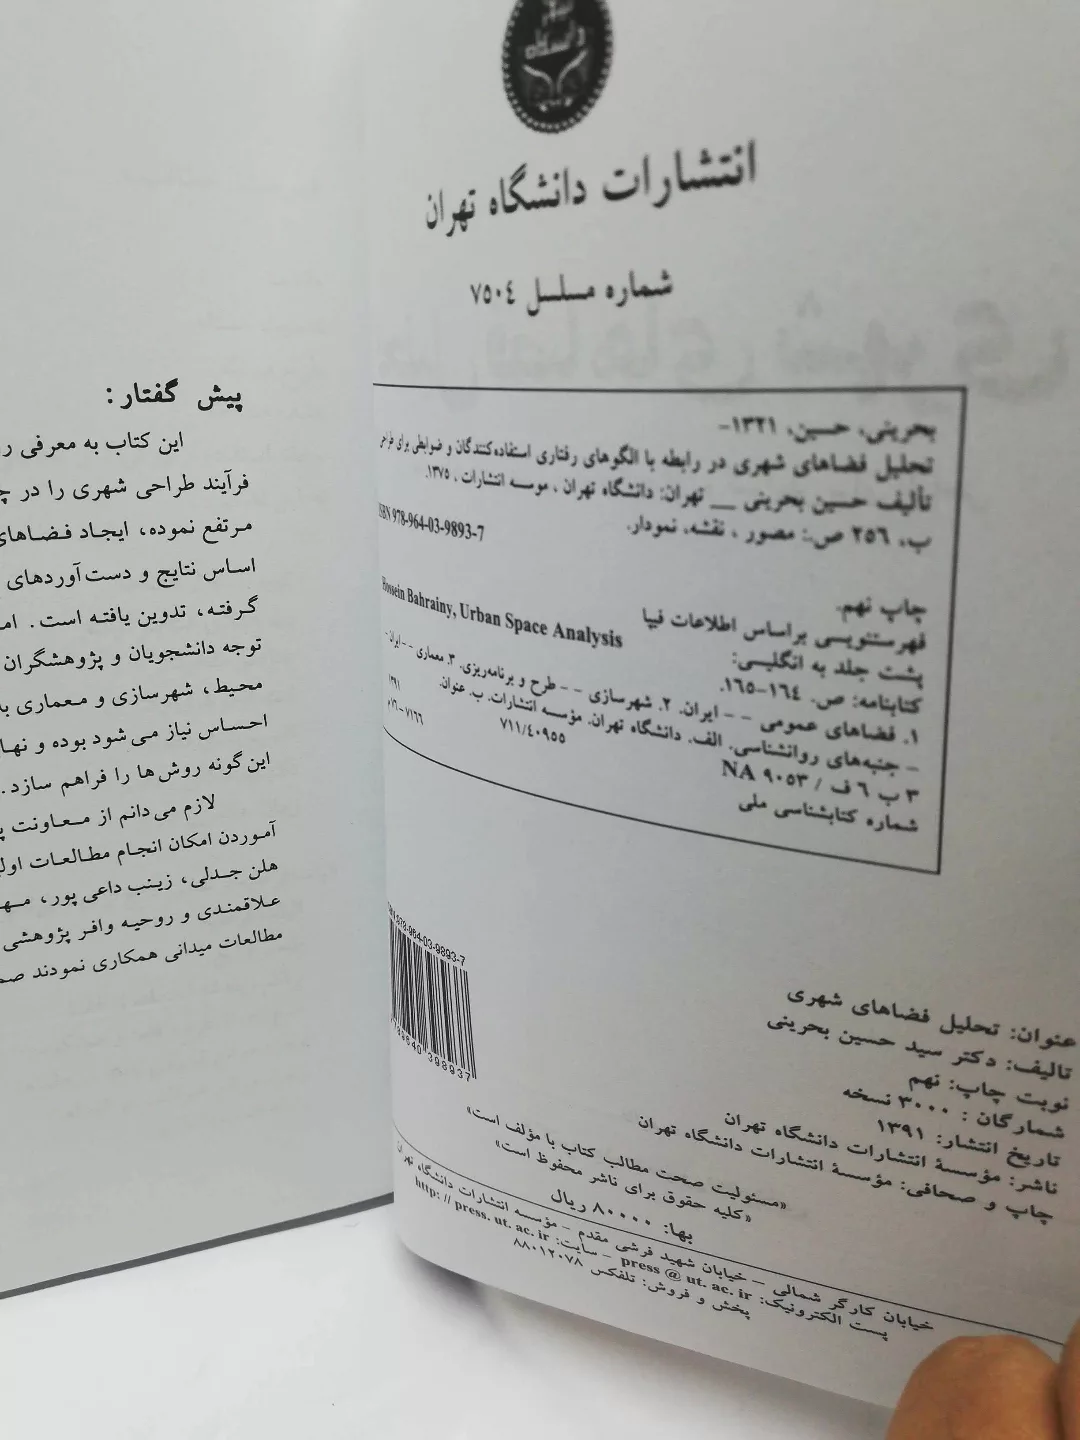 دانشگاه
انتشارات دانشگاه تهران
شماره مسلسل ٧٥٠٤
بحرینی، حسین، ١٣٢١-
تحلیل فضاهای شهری در رابطه با الگوهای رفتاری استفاده‌کنندگان و ضوابطی برای طراحی
تألیف حسین بحرینی __ تهران: دانشگاه تهران ، موسسه انتشارات ، ١٣٧٥.
ب، ٢٥٦ ص.: مصور ، نقشه، نمودار.
ISBN 978-964-03-9893-7
چاپ نهم.
فهرستنویسی براساس اطلاعات فیپا
پشت جلد به انگلیسی:
Hossein Bahrainy, Urban Space Analysis
کتابنامه: ص. ١٦٤-١٦٥.
١. فضاهای عمومی - - ایران. ٢. شهرسازی - - طرح و برنامه‌ریزی. ٣. معماری - - ایران -
- جنبه‌های روانشناسی. الف. دانشگاه تهران. مؤسسه انتشارات. ب. عنوان.
٣ ب ٦ ف / ٩٠٥٣ NA
٧١١/٤٠٩٥٥
١٣٩١
شماره کتابشناسی ملی
٧١٦٦-٧٦م
ISBN 978-964-03-9893-7
9789640 398937
عنوان: تحلیل فضاهای شهری
تالیف: دکتر سید حسین بحرینی
نوبت چاپ: نهم
شمارگان : ٣٠٠٠ نسخه
تاریخ انتشار: ١٣٩١
ناشر: مؤسسهٔ انتشارات دانشگاه تهران
چاپ و صحافی: مؤسسهٔ انتشارات دانشگاه تهران
«مسئولیت صحت مطالب کتاب با مؤلف است»
«کلیه حقوق برای ناشر محفوظ است»
بها: ٨٠٠٠٠ ریال
خیابان کارگر شمالی – خیابان شهید فرشی مقدم – مؤسسه انتشارات دانشگاه تهران
پست الکترونیک: press @ ut. ac. ir – سایت: http: // press. ut. ac. ir
پخش و فروش: تلفکس ٨٨٠١٢٠٧٨
پیش گفتار:
این کتاب به معرفی
فرآیند طراحی شهری را در
مرتفع نموده، ایجاد فضاهای
اساس نتایج و دست‌آوردهای
گرفته، تدوین یافته است.
توجه دانشجویان و پژوهشگران
محیط، شهرسازی و معماری
احساس نیاز می‌شود بوده و
این‌گونه روش‌ها را فراهم سازد.
لازم می‌دانم از معاونت
آموردن امکان انجام مطالعات
هلن جدلی، زینب داعی پور،
علاقمندی و روحیه وافر پژوهشی
مطالعات میدانی همکاری نمودند